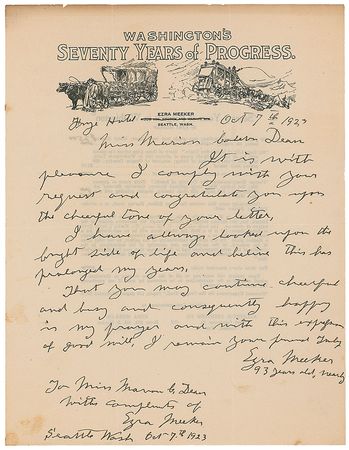 WASHINGTON'S
SEVENTY YEARS of PROGRESS.
EZRA MEEKER
SEATTLE, WASH.
Frye Hotel Oct 7th 1923
Miss Marion Dean
It is with
pleasure I comply with your
request and congratulate you upon
the cheerful tone of your letter,
I have always looked upon the
bright side of life and believe this has
prolonged my years,
That you may continue cheerful
and busy and consequently happy
is my prayer and with this expression
of good will I remain your friend truly
Ezra Meeker
93 years old, nearly
To Miss Marion C. Dean
With compliments of
Ezra Meeker
Seattle Wash Oct 7th 1923